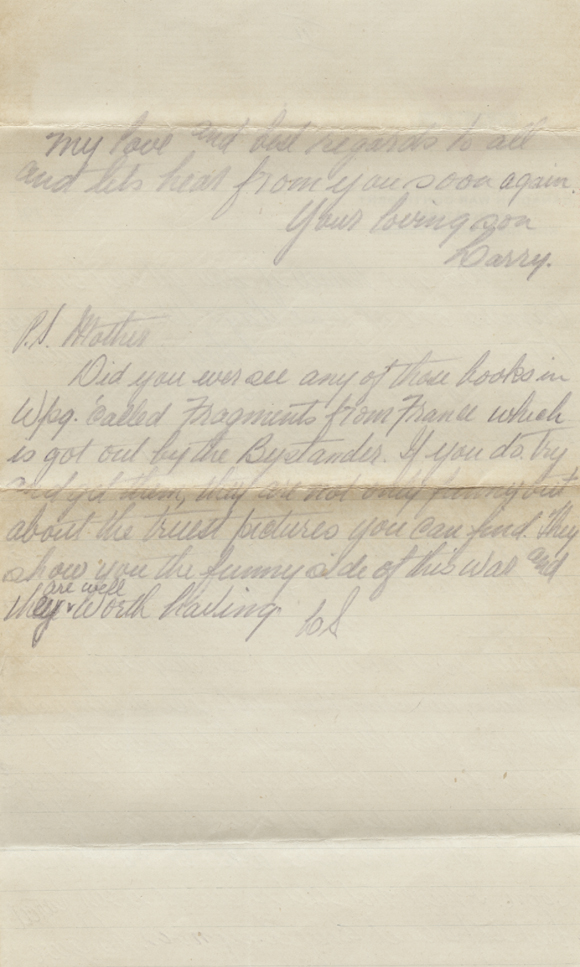 my love and best regards to all
and lets hear from you soon again.
Your loving son
Harry.
P.S. Mother
Did you ever see any of those books in
Wpg. called Fragments from France which
is got out by the Bystander. If you do. try
and get them, they are not only funny but
about the truest pictures you can find. They
show you the funny side of this war and
they are well worth having HS